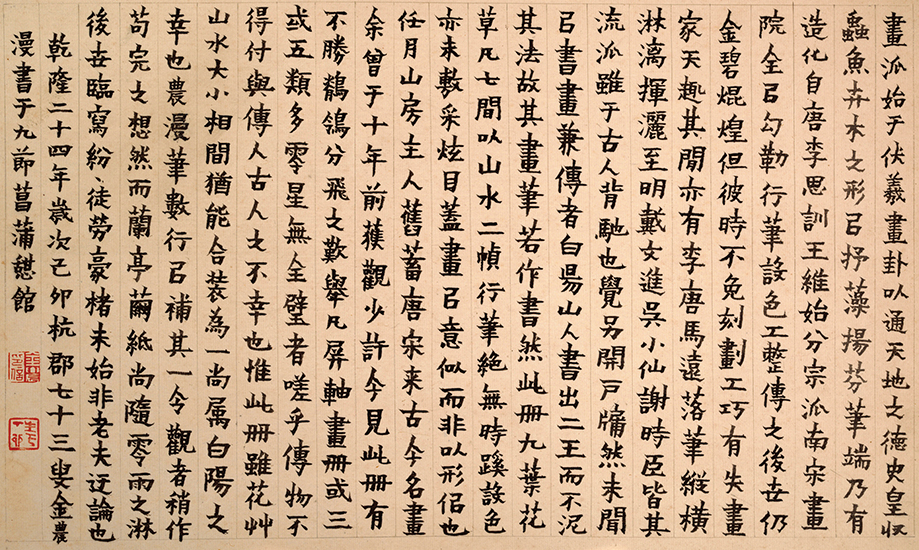 畫派始于伏羲畫卦以通天地之德史皇收
蟲魚卉木之形㠯抒藻揚芬筆端乃有
造化自唐李思訓王維始分宗派南宋畫
院全㠯勾勒行筆設色工整傳之後世仍
金碧焜煌但彼時不免刻劃工巧有失畫
家天趣其閒亦有李唐馬遠落筆縱橫
淋漓揮灑至明戴文進吳小仙謝時臣皆其
流派雖于古人背馳也覺另開戶牖然未聞
㠯書畫兼傳者白昜山人書出二王而不泥
其法故其畫筆若作書然此冊九葉花
草凡七間以山水二幀行筆絕無時蹊設色
亦未敷采炫目蓋畫㠯意似而非以形侶也
任月山房主人舊蓄唐宋來古今名畫
余曾于十年前獲觀少許今見此冊有
不勝鶺鴒分飛之歎舉凡屏軸畫冊或三
或五類多零星無全璧者嗟乎傳物不
得付與傳人古人之不幸也惟此冊雖花艸
山水大小相間猶能合裝為一尚属白陽之
幸也農漫筆數行㠯補其一令觀者稍作
苟完之想然而蘭亭繭紙尚隨零雨之淋
後世臨寫紛〻徒勞豪楮未始非老夫迂論也
乾隆二十四年歲次己卯杭郡七十三叟金農
漫書于九節菖蒲憇館